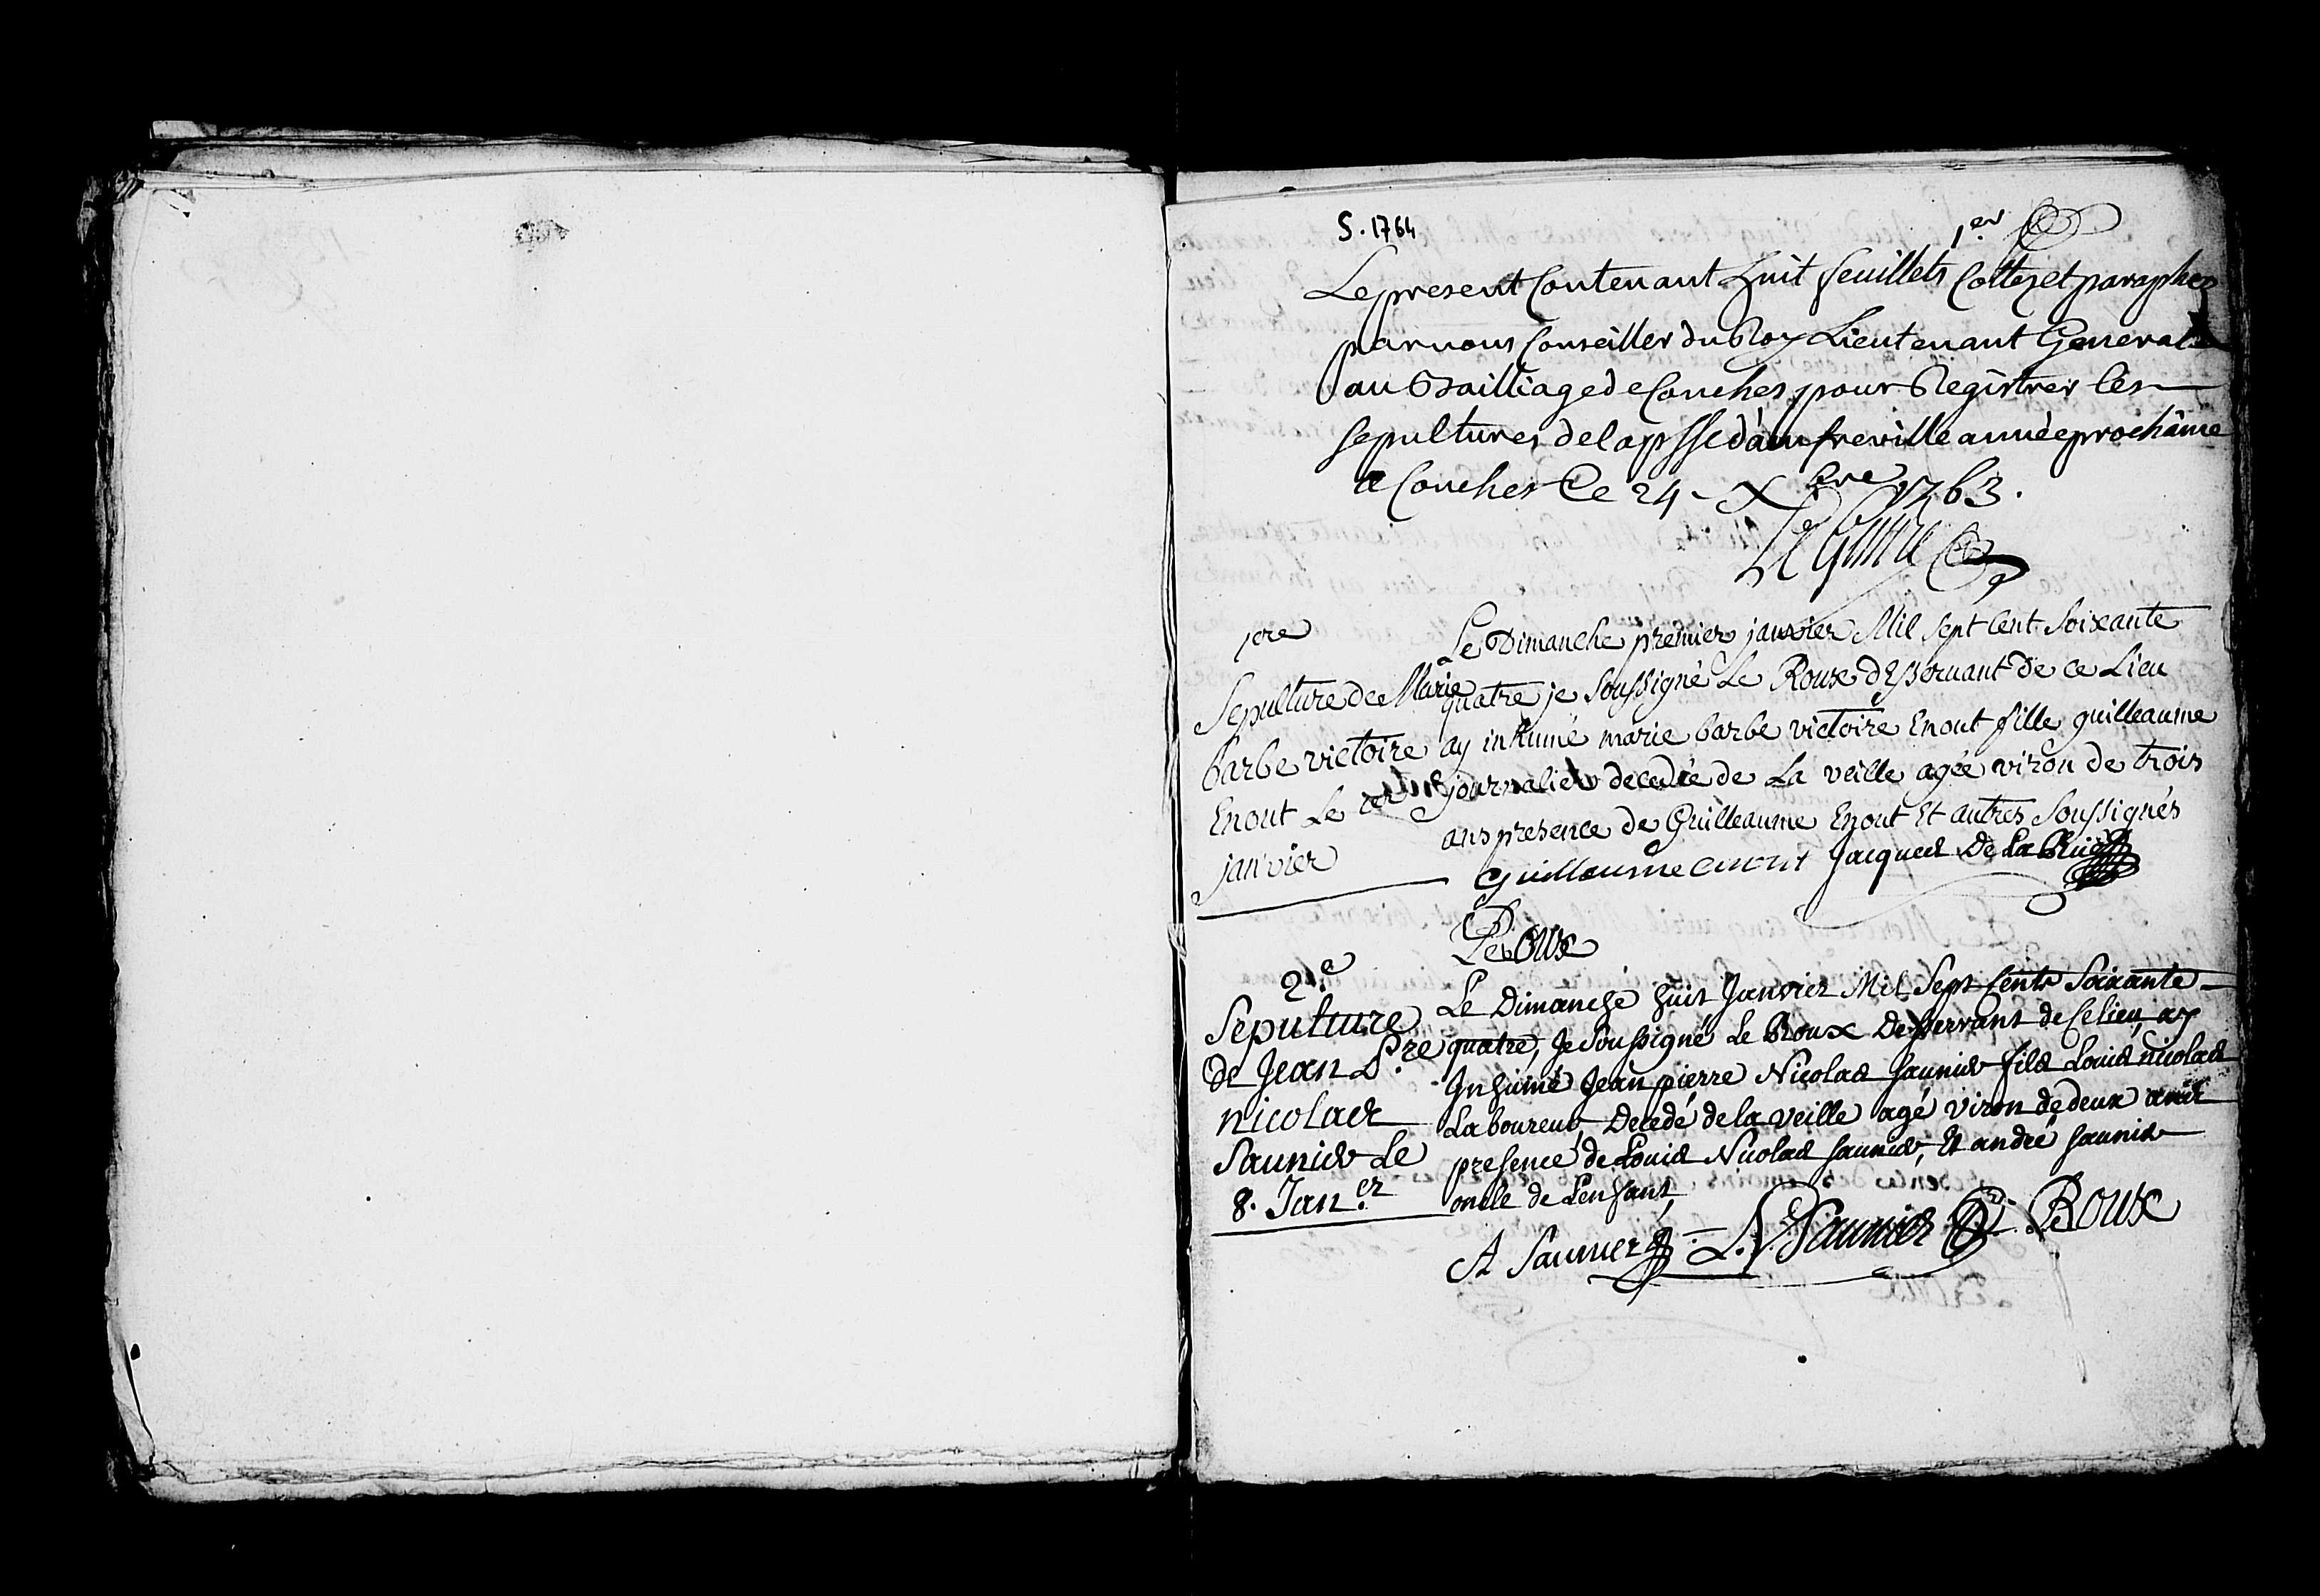 S. 1764
1er
Le present Contenant huit feuillets Cottez et paraphez
par nous Conseiller du Roy Lieutenant General
au Bailliage de Conches pour Registrer les
sepultures de la psse d'amfreville année prochaine
a Conches Ce 24 Xbre 1763.
1ere
Sepulture de Marie
barbe victoire
Enout Le 1er
janvier
Le Dimanche premier janvier Mil Sept Cent Soixante
quatre je Soussigné Le Roux dessservant de ce Lieu
ay inhumé marie barbe victoire Enout fille guilleaume
journalier decedée de La veille agée viron de trois
ans presence de Guilleaume Enout Et autres Soussignés
Guillaume enout Jacques De La
Le Roux
2e
Sepulture
de Jean Pre
nicolas
Saunier Le
8. Jan.er
Le Dimanche huit Janvier Mil Sept Cents Soixante
quatre, Je Soussigné Le Roux Desservant de Ce lieu, ay
Inhumé Jean pierre Nicolas Saunier fils Louis nicolas
Laboureur, Decedé de la veille agé viron de deux ans
presence de Louis Nicolas Saunier, Et andré Saunier
oncle de L'enfant,
A Saunier L. N. Saunier Le Roux